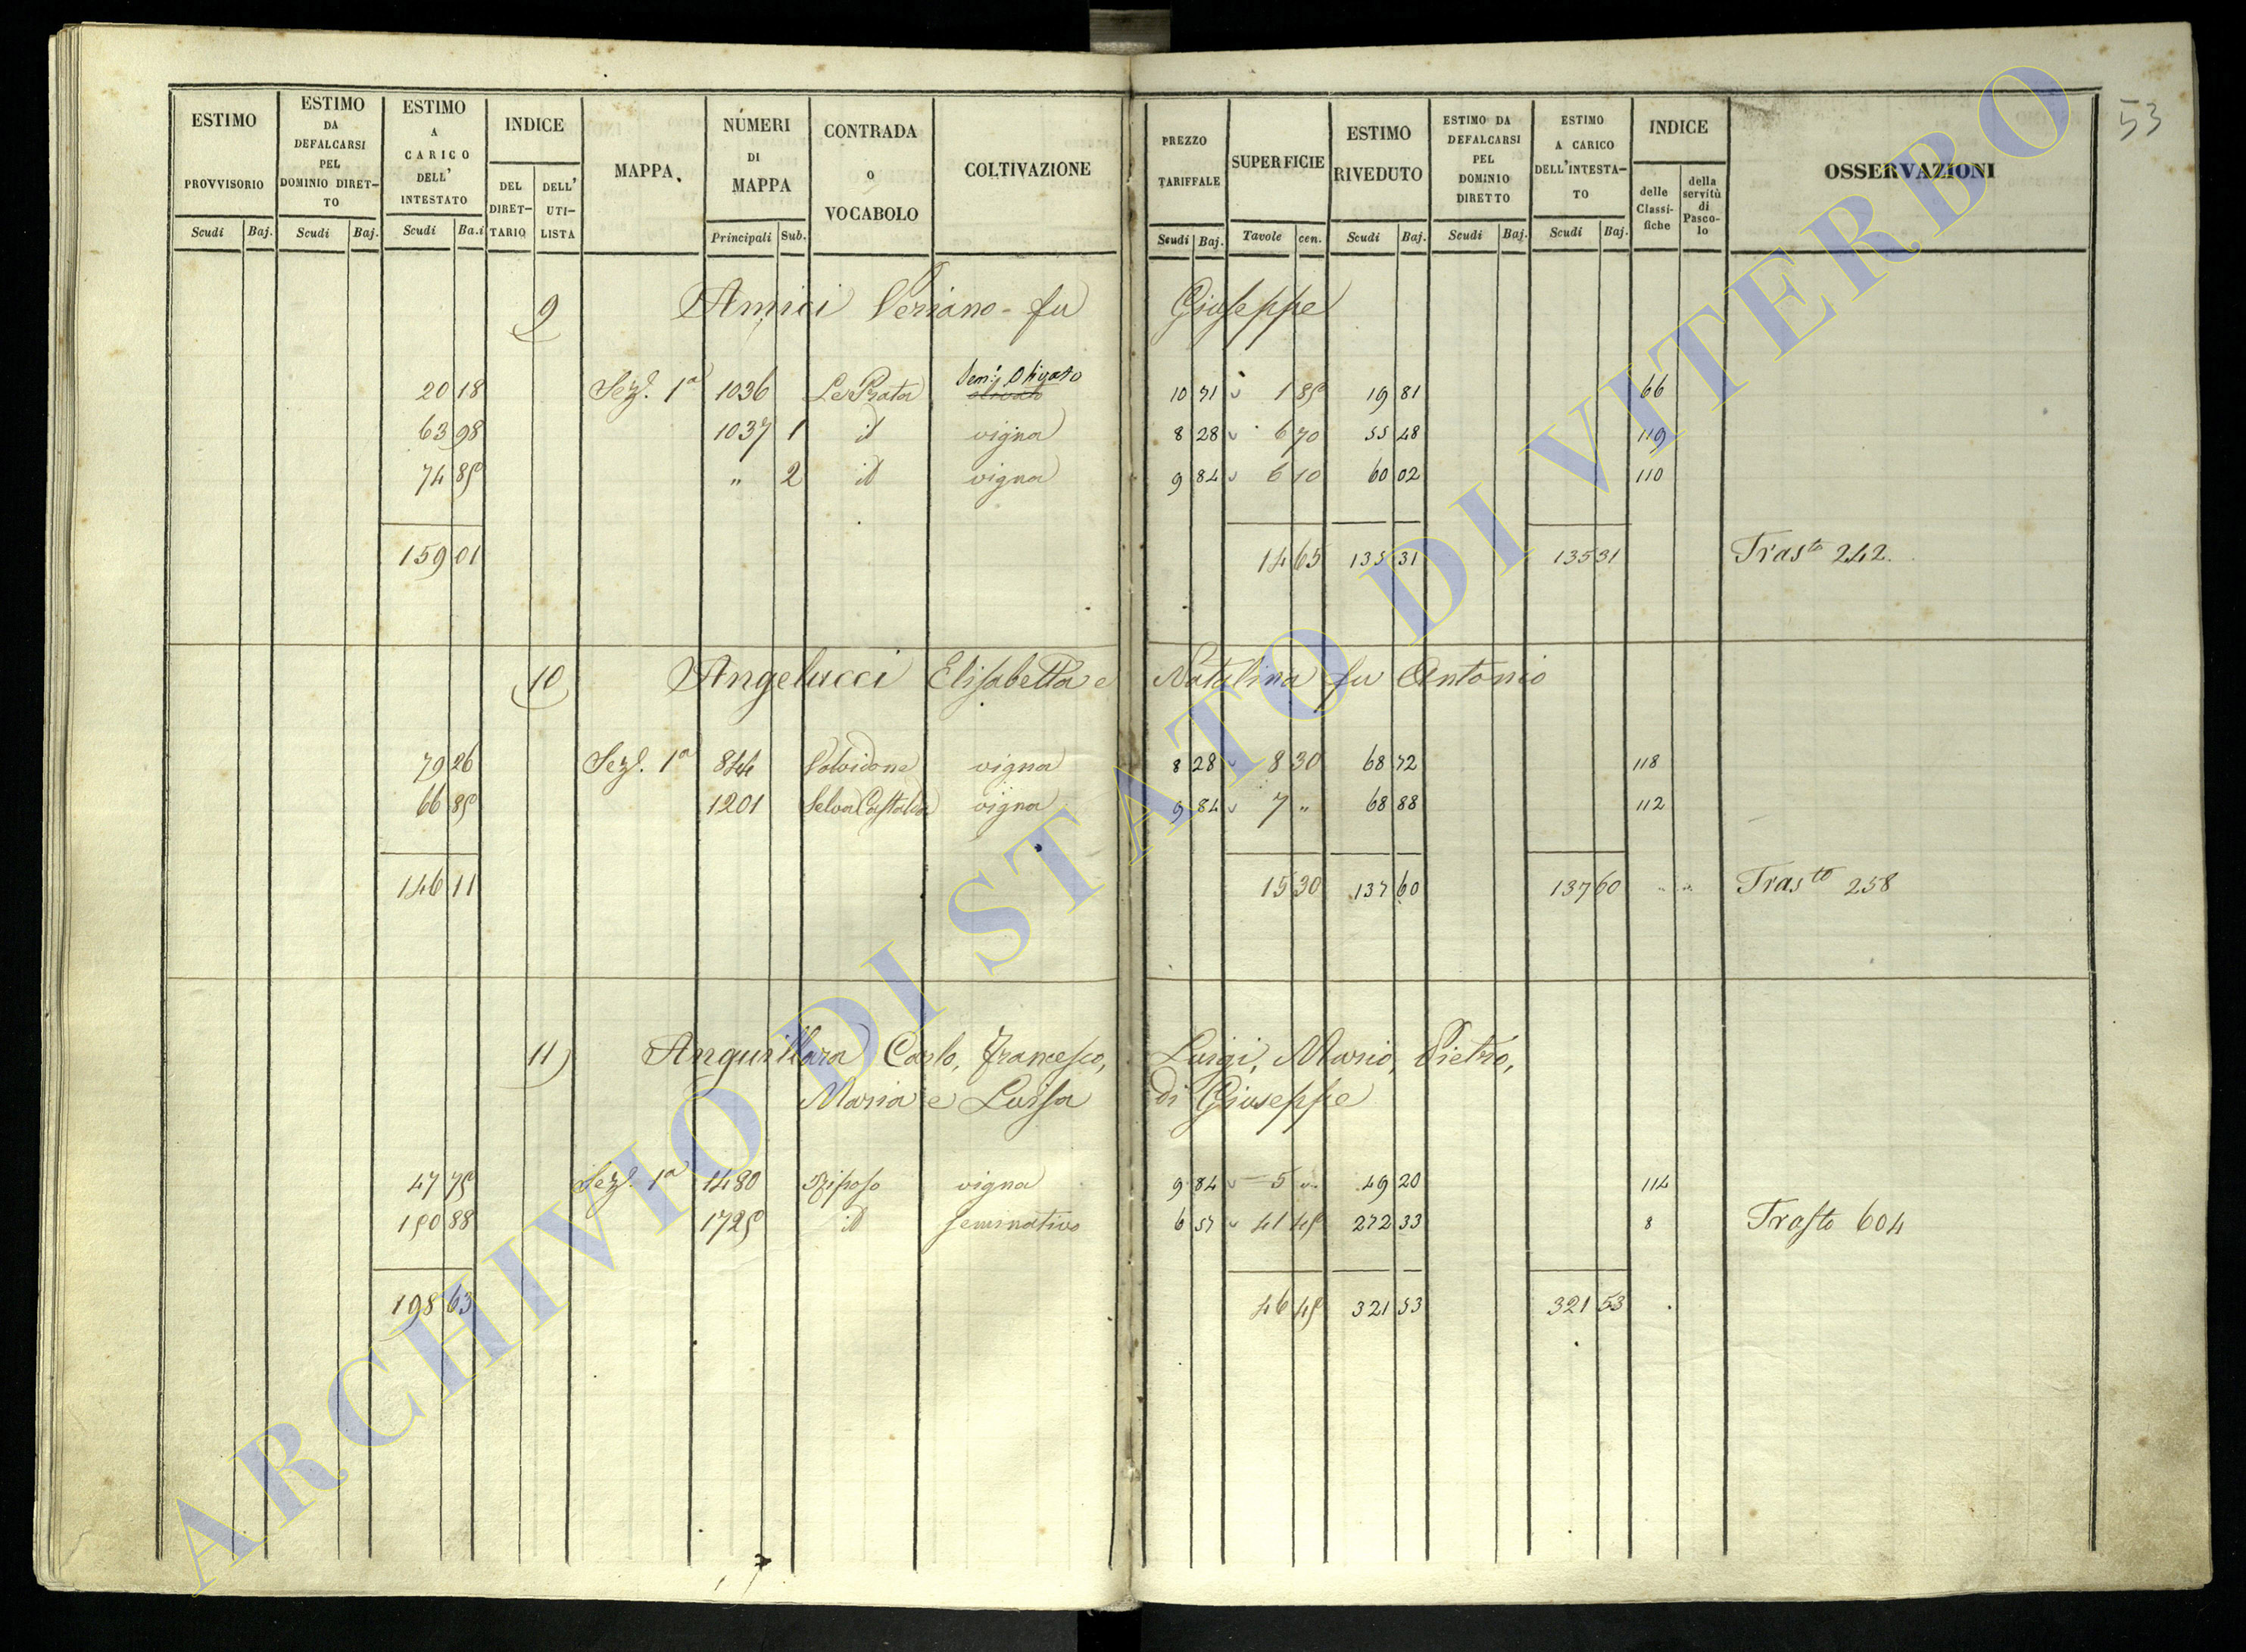 53
ESTIMO PROVVISORIO | ESTIMO DA DEFALCARSI PEL DOMINIO DIRET-TO | ESTIMO A CARICO DELL' INTESTATO | INDICE | MAPPA. | NUMERI DI MAPPA | CONTRADA O VOCABOLO | COLTIVAZIONE | PREZZO TARIFFALE | SUPERFICIE | ESTIMO RIVEDUTO | ESTIMO DA DEFALCARSI PEL DOMINIO DIRETTO | ESTIMO A CARICO DELL'INTESTA-TO | INDICE | OSSERVAZIONI
DEL DIRET-TARIO | DELL' UTI-LISTA | delle Classi-fiche | della servitù di Pasco-lo
Scudi | Baj. | Scudi | Baj. | Scudi | Ba.i | Principali | Sub. | Scudi | Baj. | Tavole | cen. | Scudi | Baj. | Scudi | Baj. | Scudi | Baj.
9 Amici Veriano - fu Giuseppe
20 18 Sez. 1a 1036 Le Prata Sem. Olivato olivato 10 71 1 85 19 81 66
63 98 1037 1 id vigna 8 28 6 70 55 48 119
74 85 " 2 id vigna 9 84 6 10 60 02 110
159 01 14 65 135 31 135 31 Trasto 242.
10 Angelucci Elisabetta e Natalina fu Antonio
79 26 Sez. 1a 844 vigna 8 28 8 30 68 72 118
66 85 1201 Selva vigna 9 84 7 " 68 88 112
146 11 15 30 137 60 137 60 " " Trastto 258
11 Anguillara Carlo, Francesco, Luigi, Mario, Pietro,
Maria e Luisa di Giuseppe
47 75 Sez. 1a 1480 Riposo vigna 9 84 5 " 49 20 114
150 88 1725 id seminativo 6 57 41 45 272 33 8 Trasto 604
198 63 46 45 321 53 321 53
ARCHIVIO DI STATO DI VITERBO